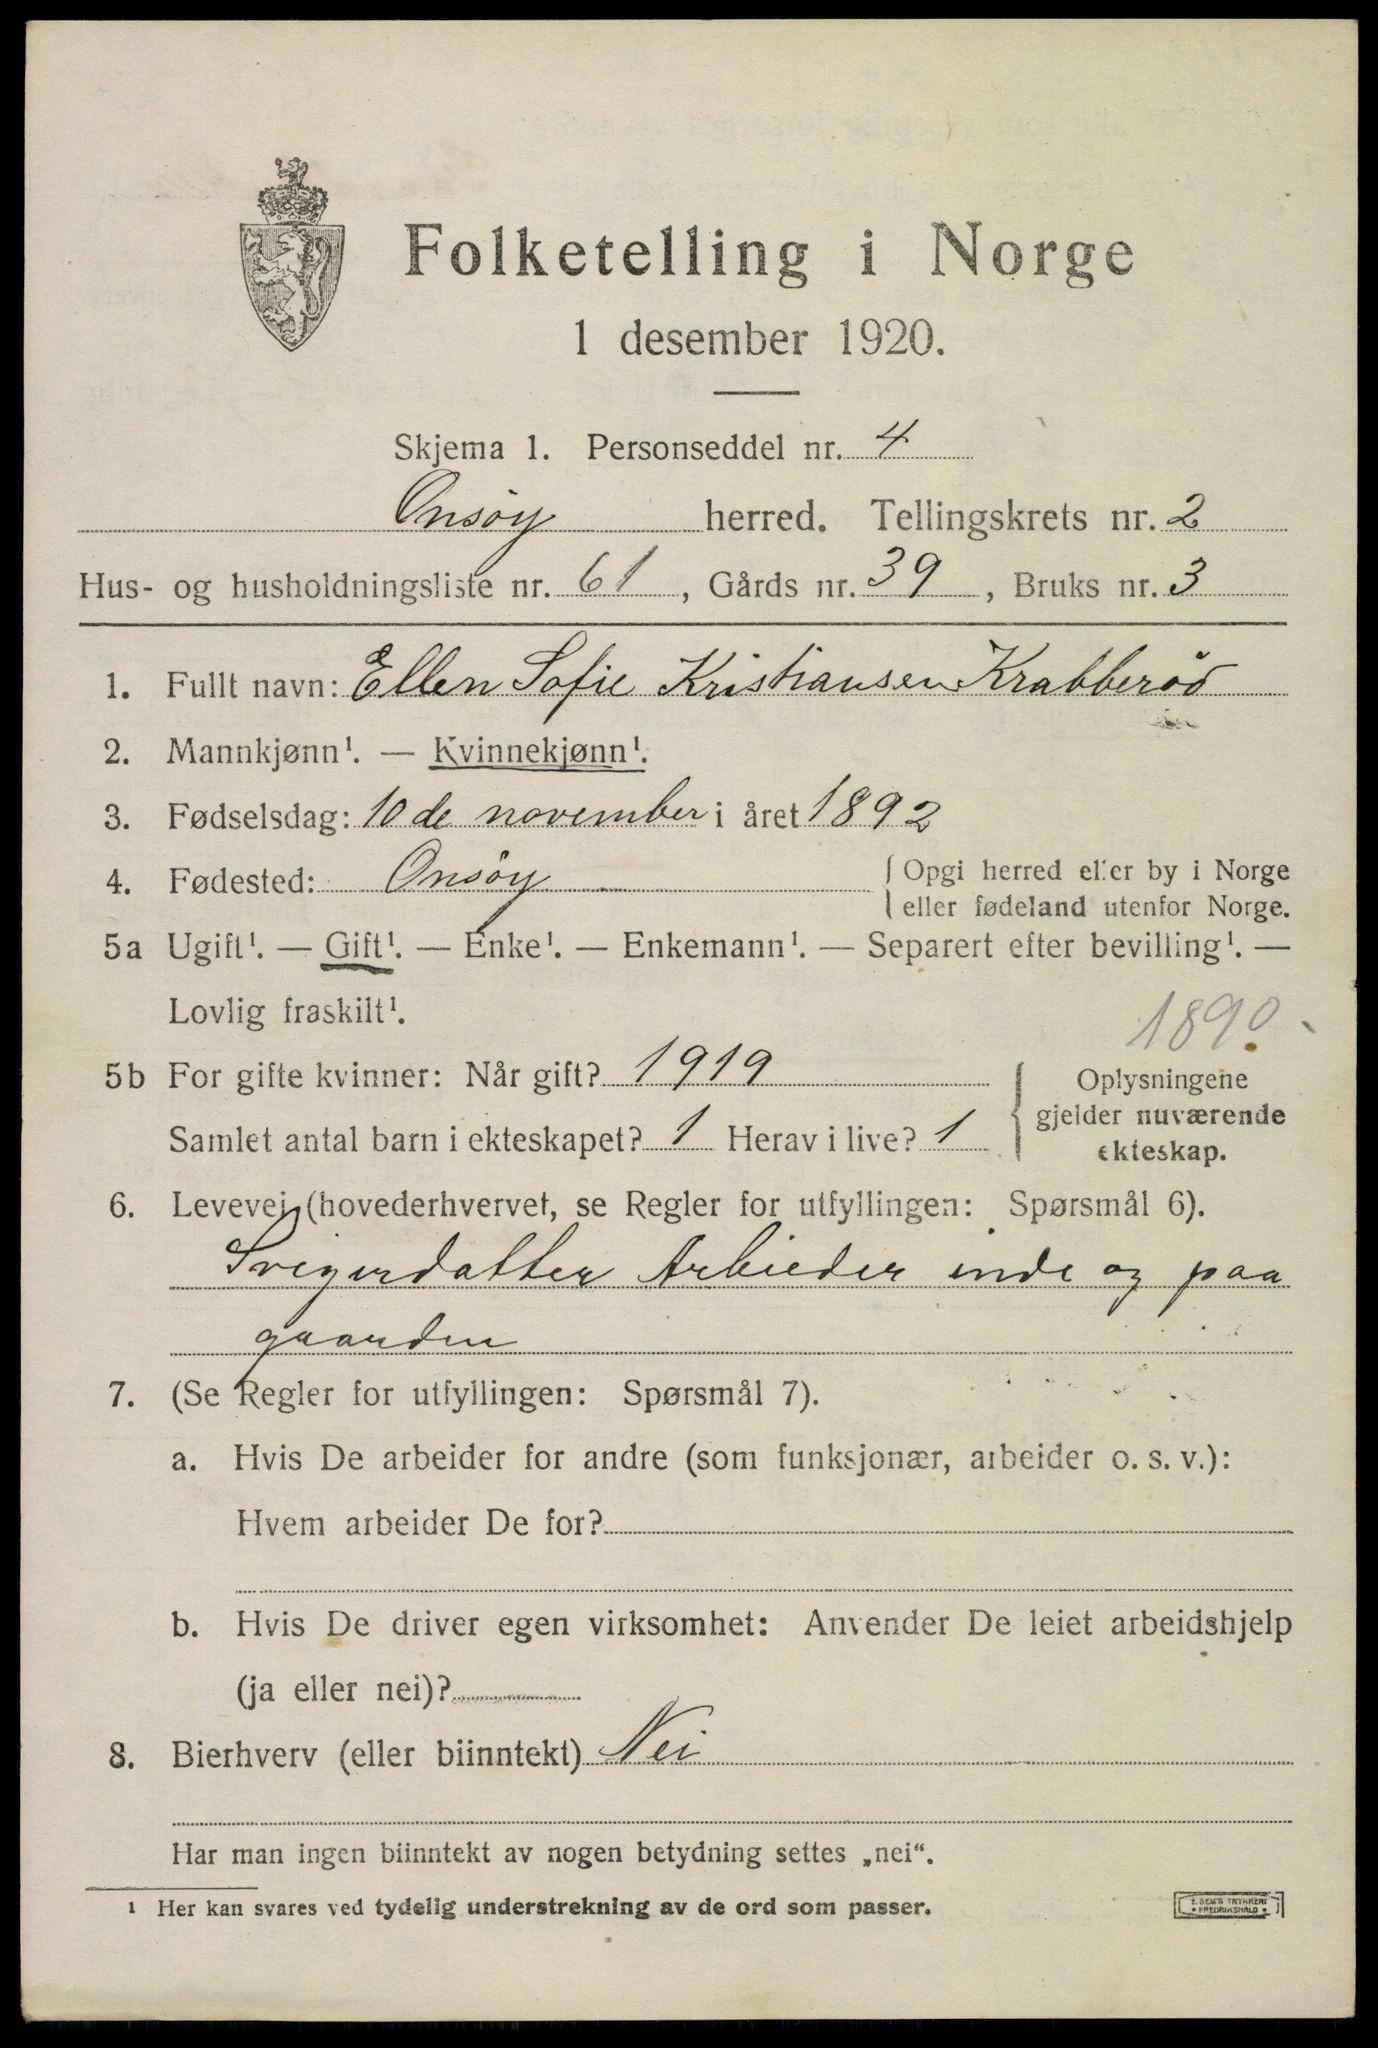 Folketelling i Norge
1 desember 1920.
Skjema 1. Personseddel nr. 4
Onsøy herred. Tellingskrets nr. 2
Hus- og husholdningsliste nr. 61, Gårds nr. 39, Bruks nr. 3
1. Fullt navn: Ellen Sofie Kristiansen Krabberød
2. Mannkjønn¹. — Kvinnekjønn¹.
3. Fødselsdag: 10de november i året 1892
4. Fødested: Onsøy { Opgi herred eller by i Norge
eller fødeland utenfor Norge.
5a Ugift¹. — Gift¹. — Enke¹. — Enkemann¹. — Separert efter bevilling¹. —
Lovlig fraskilt¹.
1890
5b For gifte kvinner: Når gift? 1919
Samlet antal barn i ekteskapet? 1 Herav i live? 1
Oplysningene
gjelder nuværende
ekteskap.
6. Levevei (hovederhvervet, se Regler for utfyllingen: Spørsmål 6).
Svigerdatter Arbieder inde og paa
gaarden
7. (Se Regler for utfyllingen: Spørsmål 7).
a. Hvis De arbeider for andre (som funksjonær, arbeider o. s. v.):
Hvem arbeider De for?
b. Hvis De driver egen virksomhet: Anvender De leiet arbeidshjelp
(ja eller nei)?
8. Bierhverv (eller biinntekt) Nei
Har man ingen biinntekt av nogen betydning settes „nei“.
¹ Her kan svares ved tydelig understrekning av de ord som passer.
E. SEM'S TRYKKERI
FREDRIKSHALD